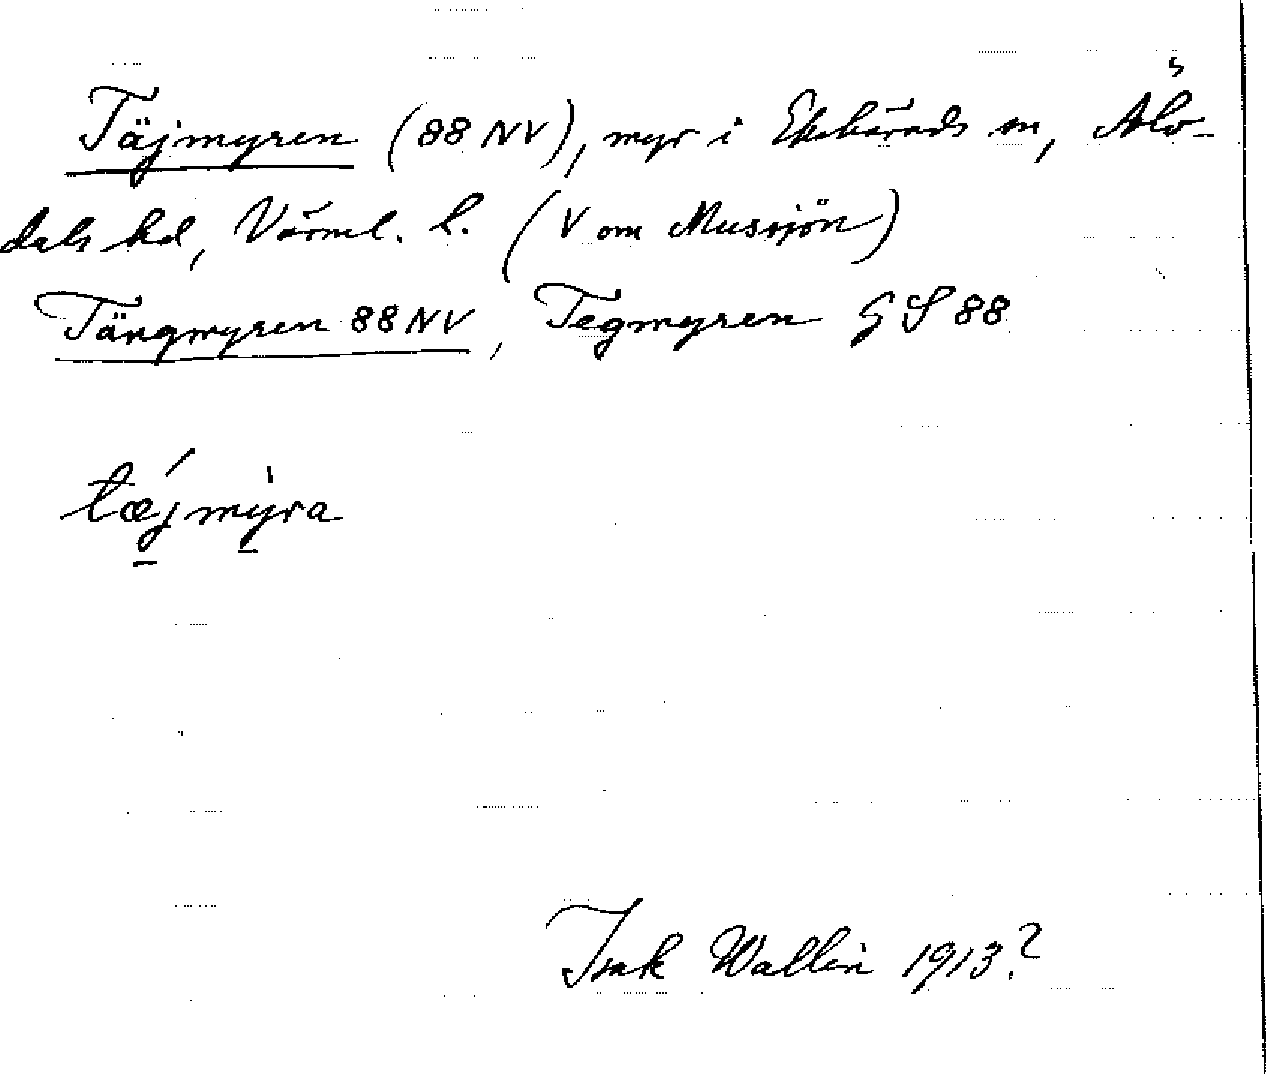 Täjmyren (88 NV), myr i Ekshärads sn, Älv-
dals hd, Värml. l. (V om Mussjön)
Tängmyren 88 NV, Tegmyren GS 88
tæjmyra
Isak Wallin 1913?